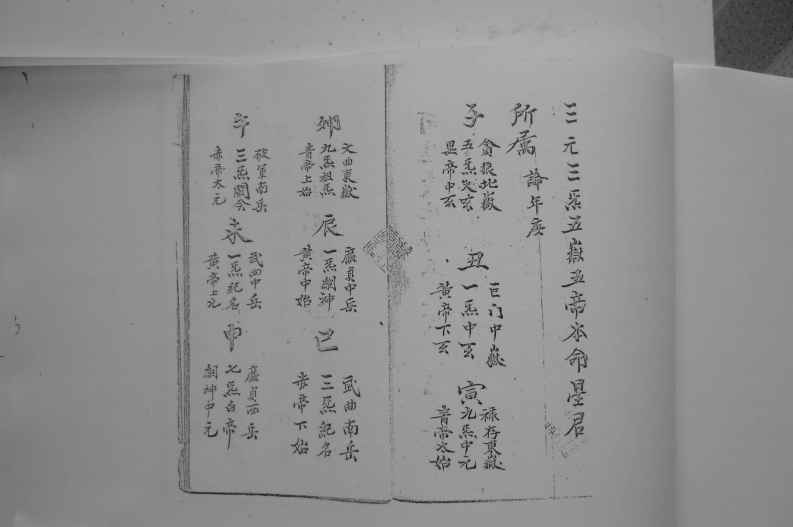 三元三炁五嶽五帝本命星君
所屬 論年庚
子
貪狼北嶽
五炁
黑帝中玄
丑
巨门中嶽
一炁中玄
黃帝下玄
寅
禄存東嶽
九炁中元
青帝太始
卯
文曲東嶽
九炁祖炁
青帝上始
辰
廉貞中岳
一炁朝神
黃帝中始
巳
武曲南岳
三炁紀名
赤帝下始
午
破軍南岳
三炁
赤帝太元
未
武曲中岳
一炁紀名
黃帝上元
申
廉貞西岳
七炁白帝
朝神中元